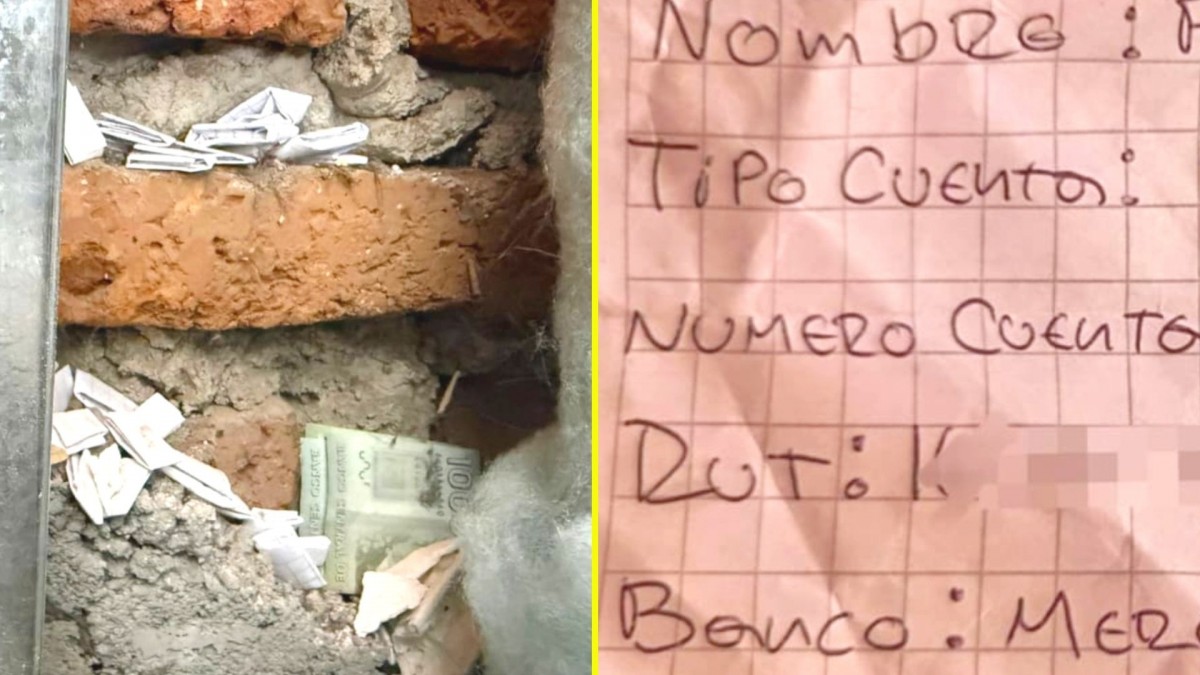 100
Nombre :
Tipo Cuenta :
Numero Cuenta
Rut : 1
Banco : Mer